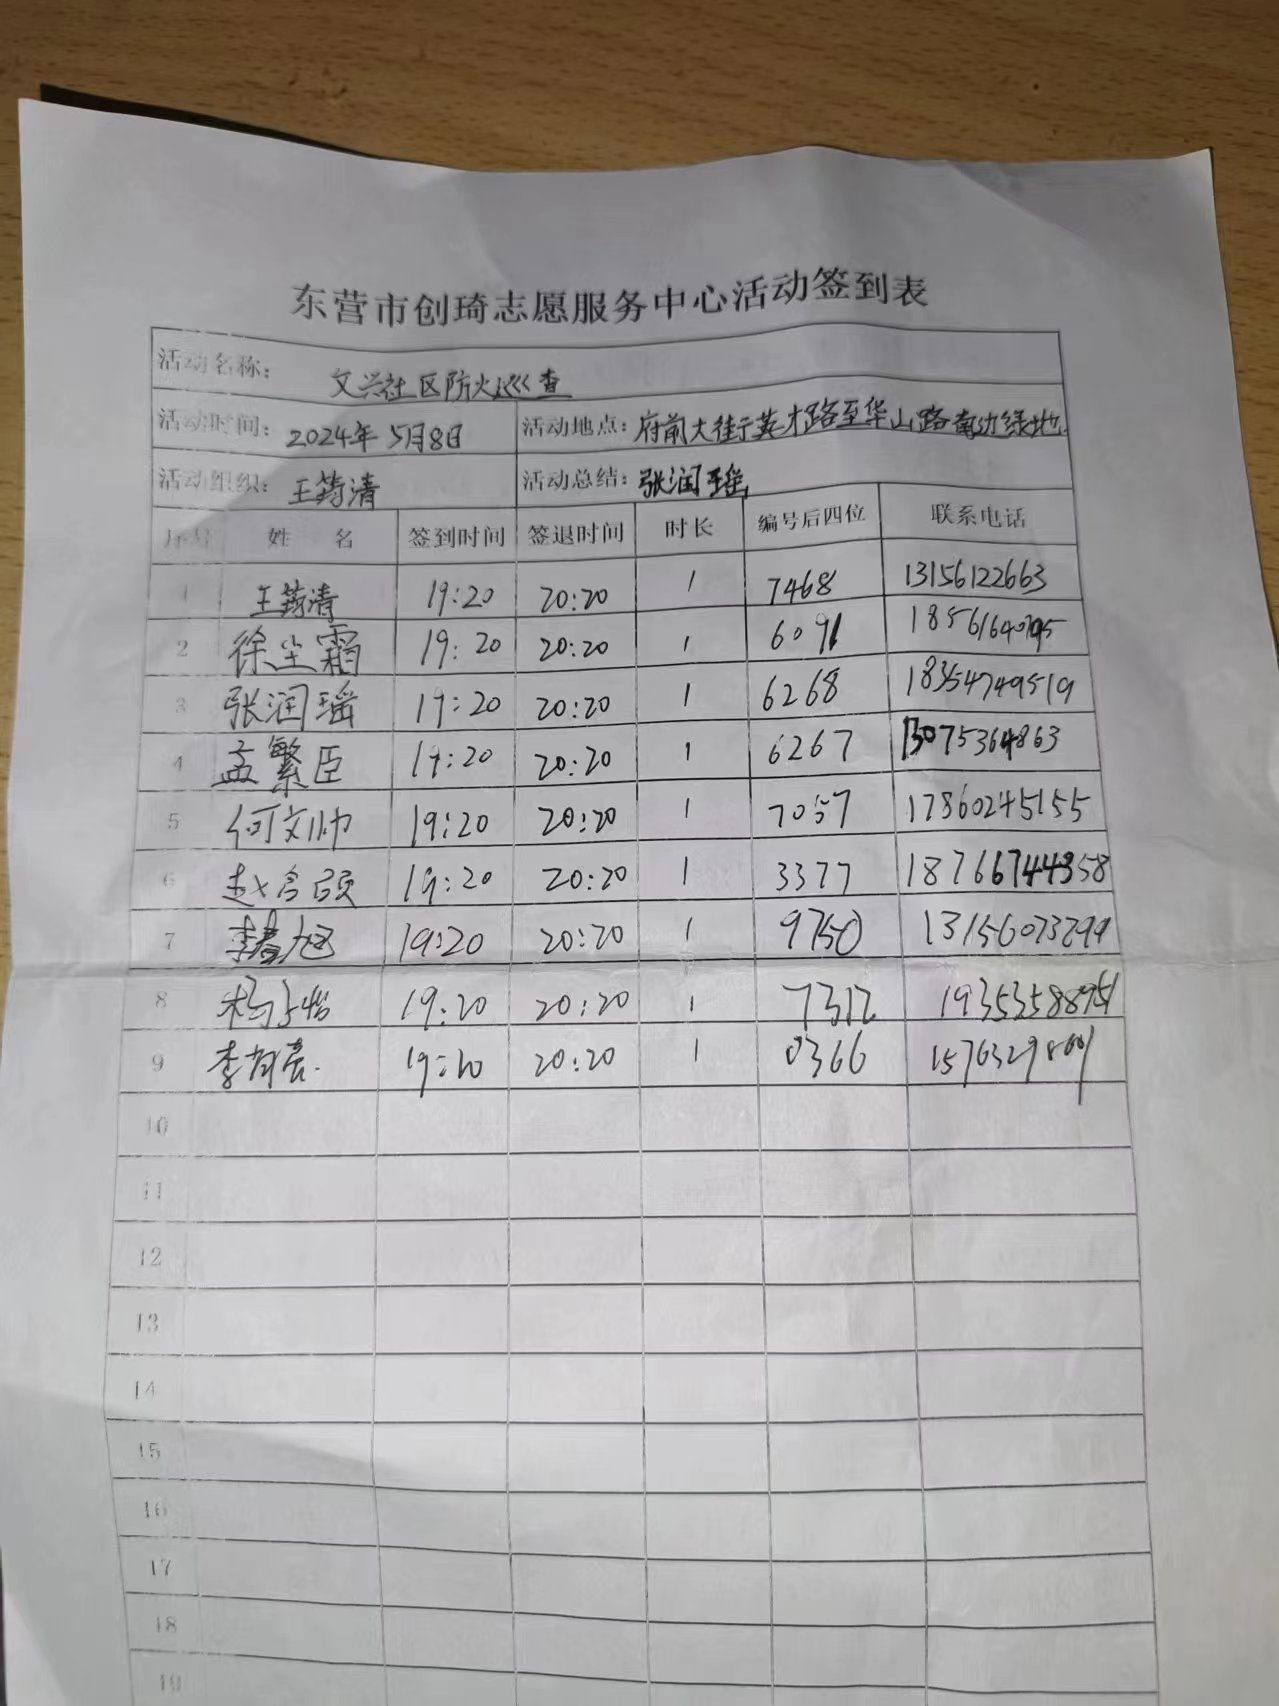 东营市创琦志愿服务中心活动签到表
活动名称: 文兴社区防火巡查
活动时间: 2024年5月8日 活动地点: 府前大街英才路至华山路南边绿地
活动组织: 王筠清 活动总结: 张润瑶
序号 姓 名 签到时间 签退时间 时长 编号后四位 联系电话
1 王筠清 19:20 20:20 1 7468 13156122663
2 徐尘霜 19:20 20:20 1 6091
3 张润瑶 19:20 20:20 1 6268 18354749519
4 孟繁臣 19:20 20:20 1 6267 13075364863
5 何文帅 19:20 20:20 1 7057 17860245155
6 赵含硕 19:20 20:20 1 3377 18766744358
7 19:20 20:20 1 9750
8 19:20 20:20 1 7312
9 19:20 20:20 1 0366
10
11
12
13
14
15
16
17
18
19